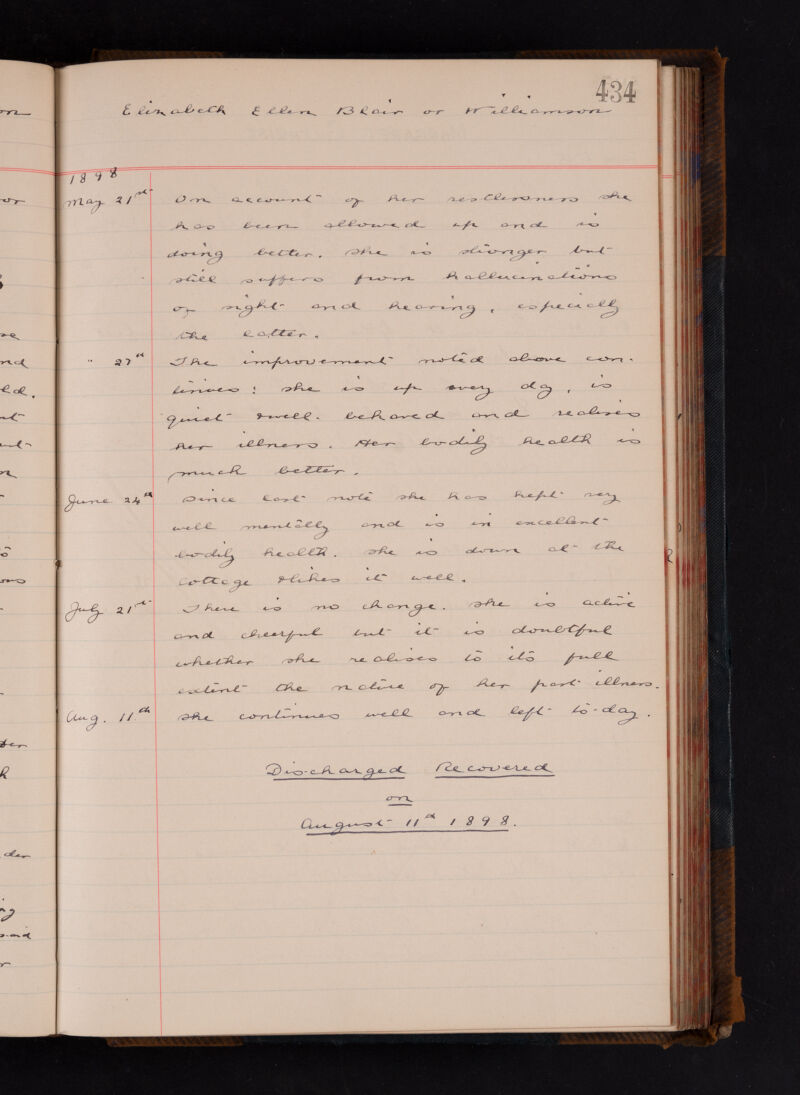 434
Elizabeth Ellen Blair or Williamson
1898
May 21st On account of her restlessness she
has been allowed up and is
doing better. She is stronger but
still suffers from hallucinations
of sight and hearing, especially
the latter.
" 27th The improvement noted above con-
tinues: she is up every day, is
quiet & well-behaved and realises
her illness. Her bodily health is
much better.
June 24th Since last note she has kept very
well mentally and is in excellent
bodily health. She is down at the
cottage & likes it well.
July 21st There is no change. She is active
and cheerful but it is doubtful
whether she realises to its full
extent the nature of her past illness.
Aug. 11th She continues well and left to-day.
Discharged Recovered
on
August 11th 1898.